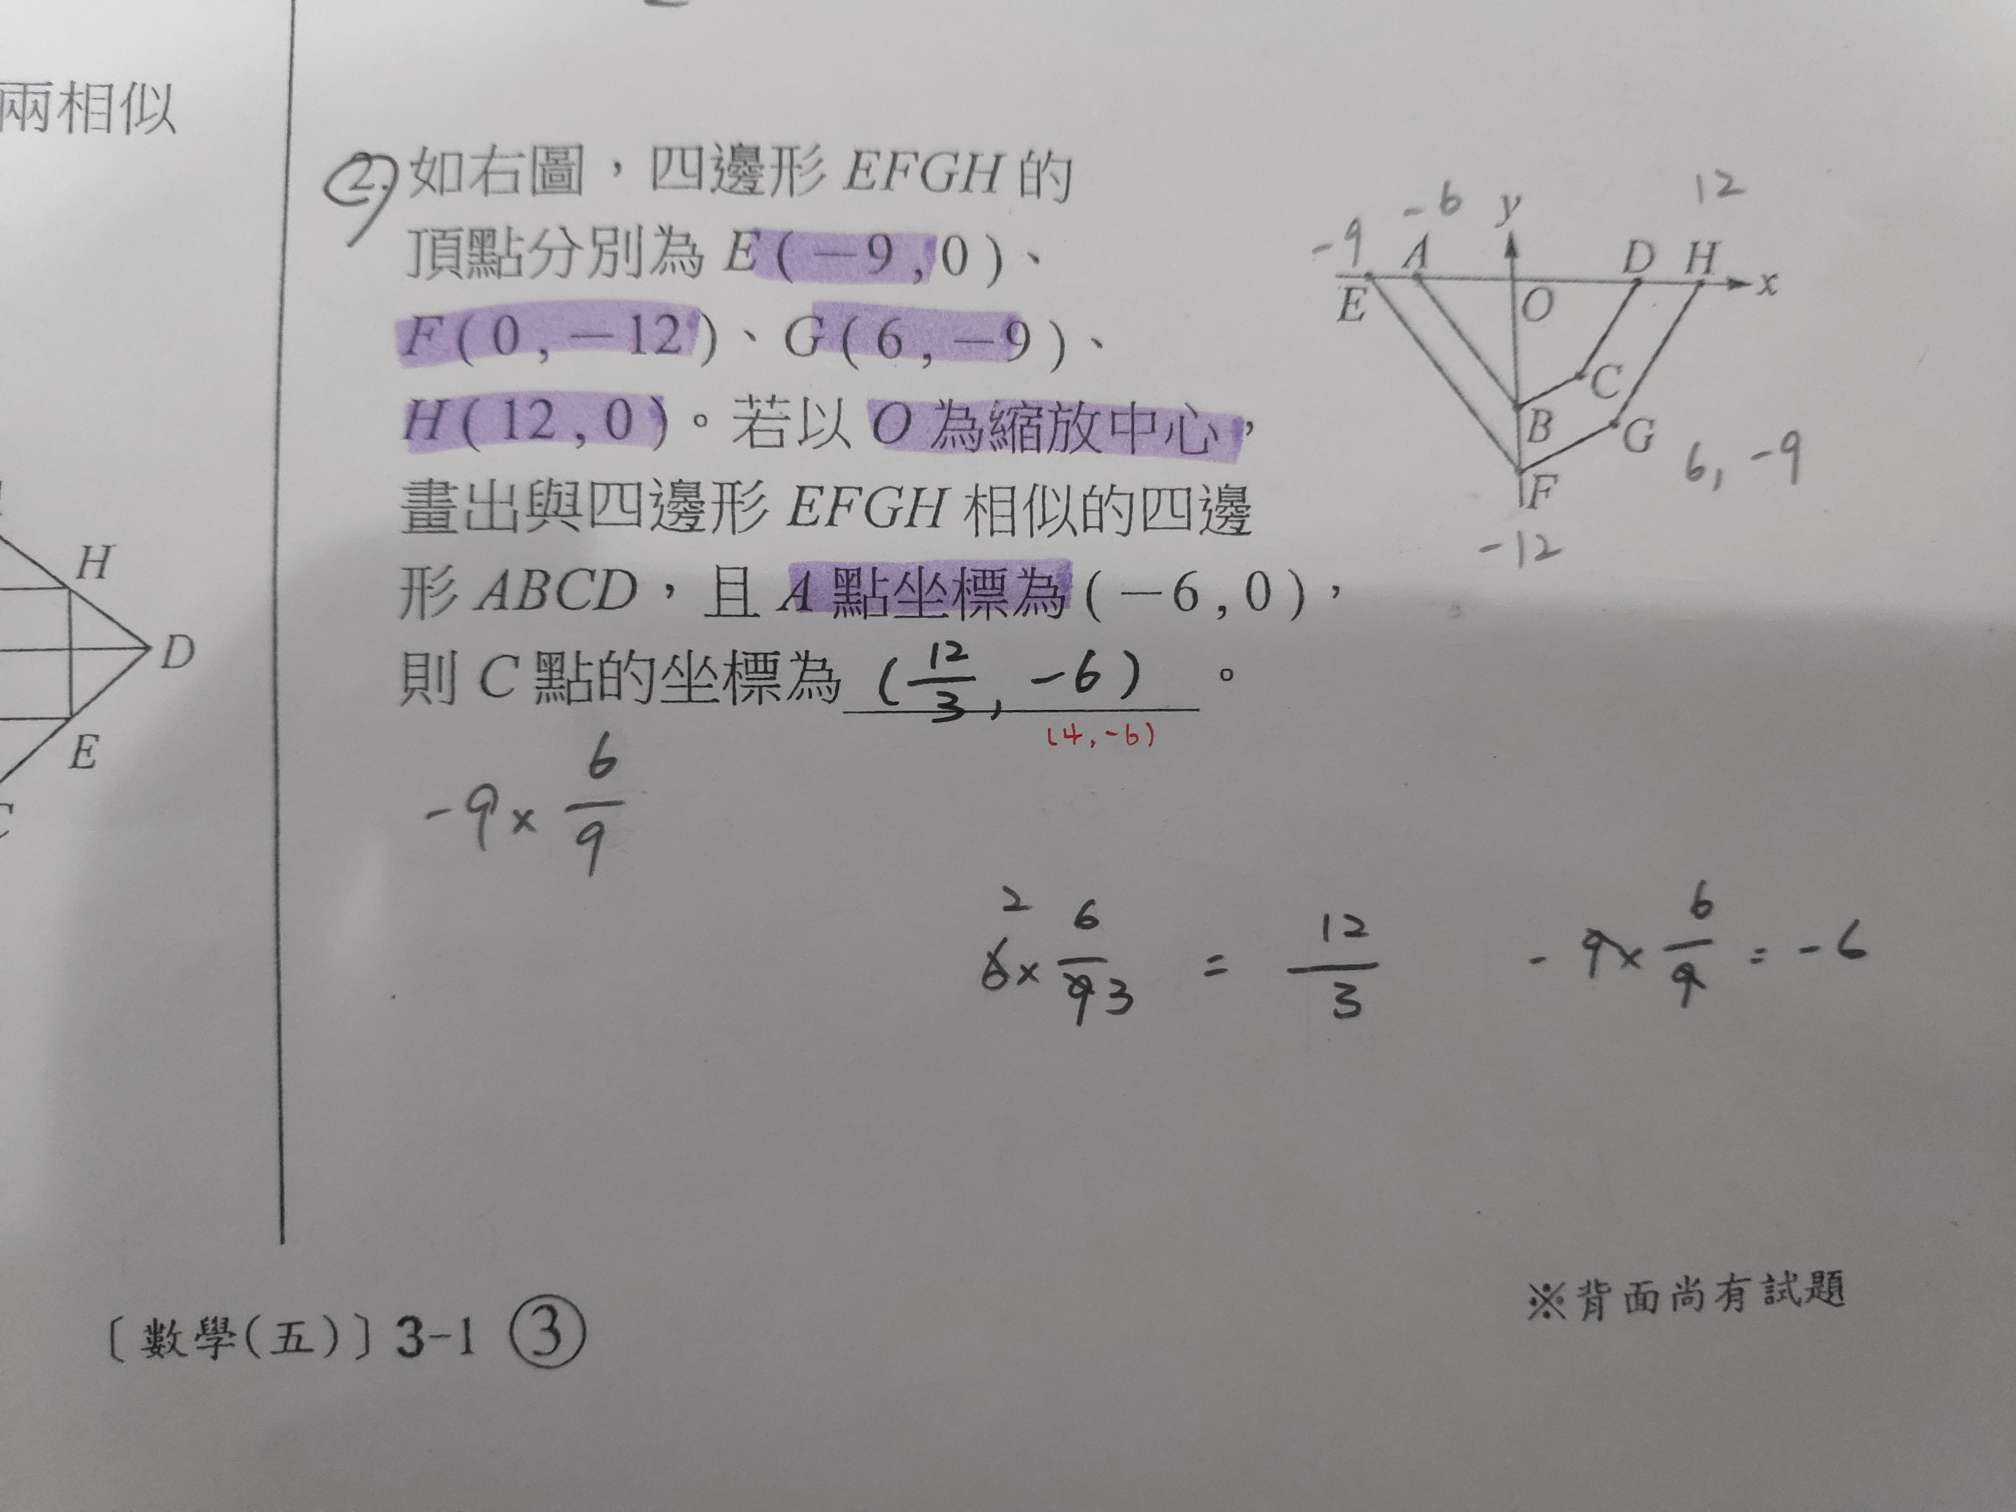 兩相似
2. 如右圖,四邊形 EFGH 的
頂點分別為 E(-9,0)、
F(0,-12)、G(6,-9)、
H(12,0)。若以 O 為縮放中心,
畫出與四邊形 EFGH 相似的四邊
形 ABCD,且 A 點坐標為(-6,0),
則 C 點的坐標為 (12/3, -6) 。
(4,-6)
-9 -6 y 12
A D H
E O x
C
B G 6, -9
F
-12
H
D
E
-9 × 6/9
2
6 × 6/9 3 = 12/3 -9 × 6/9 = -6
※背面尚有試題
〔數學(五)〕3-1 ③